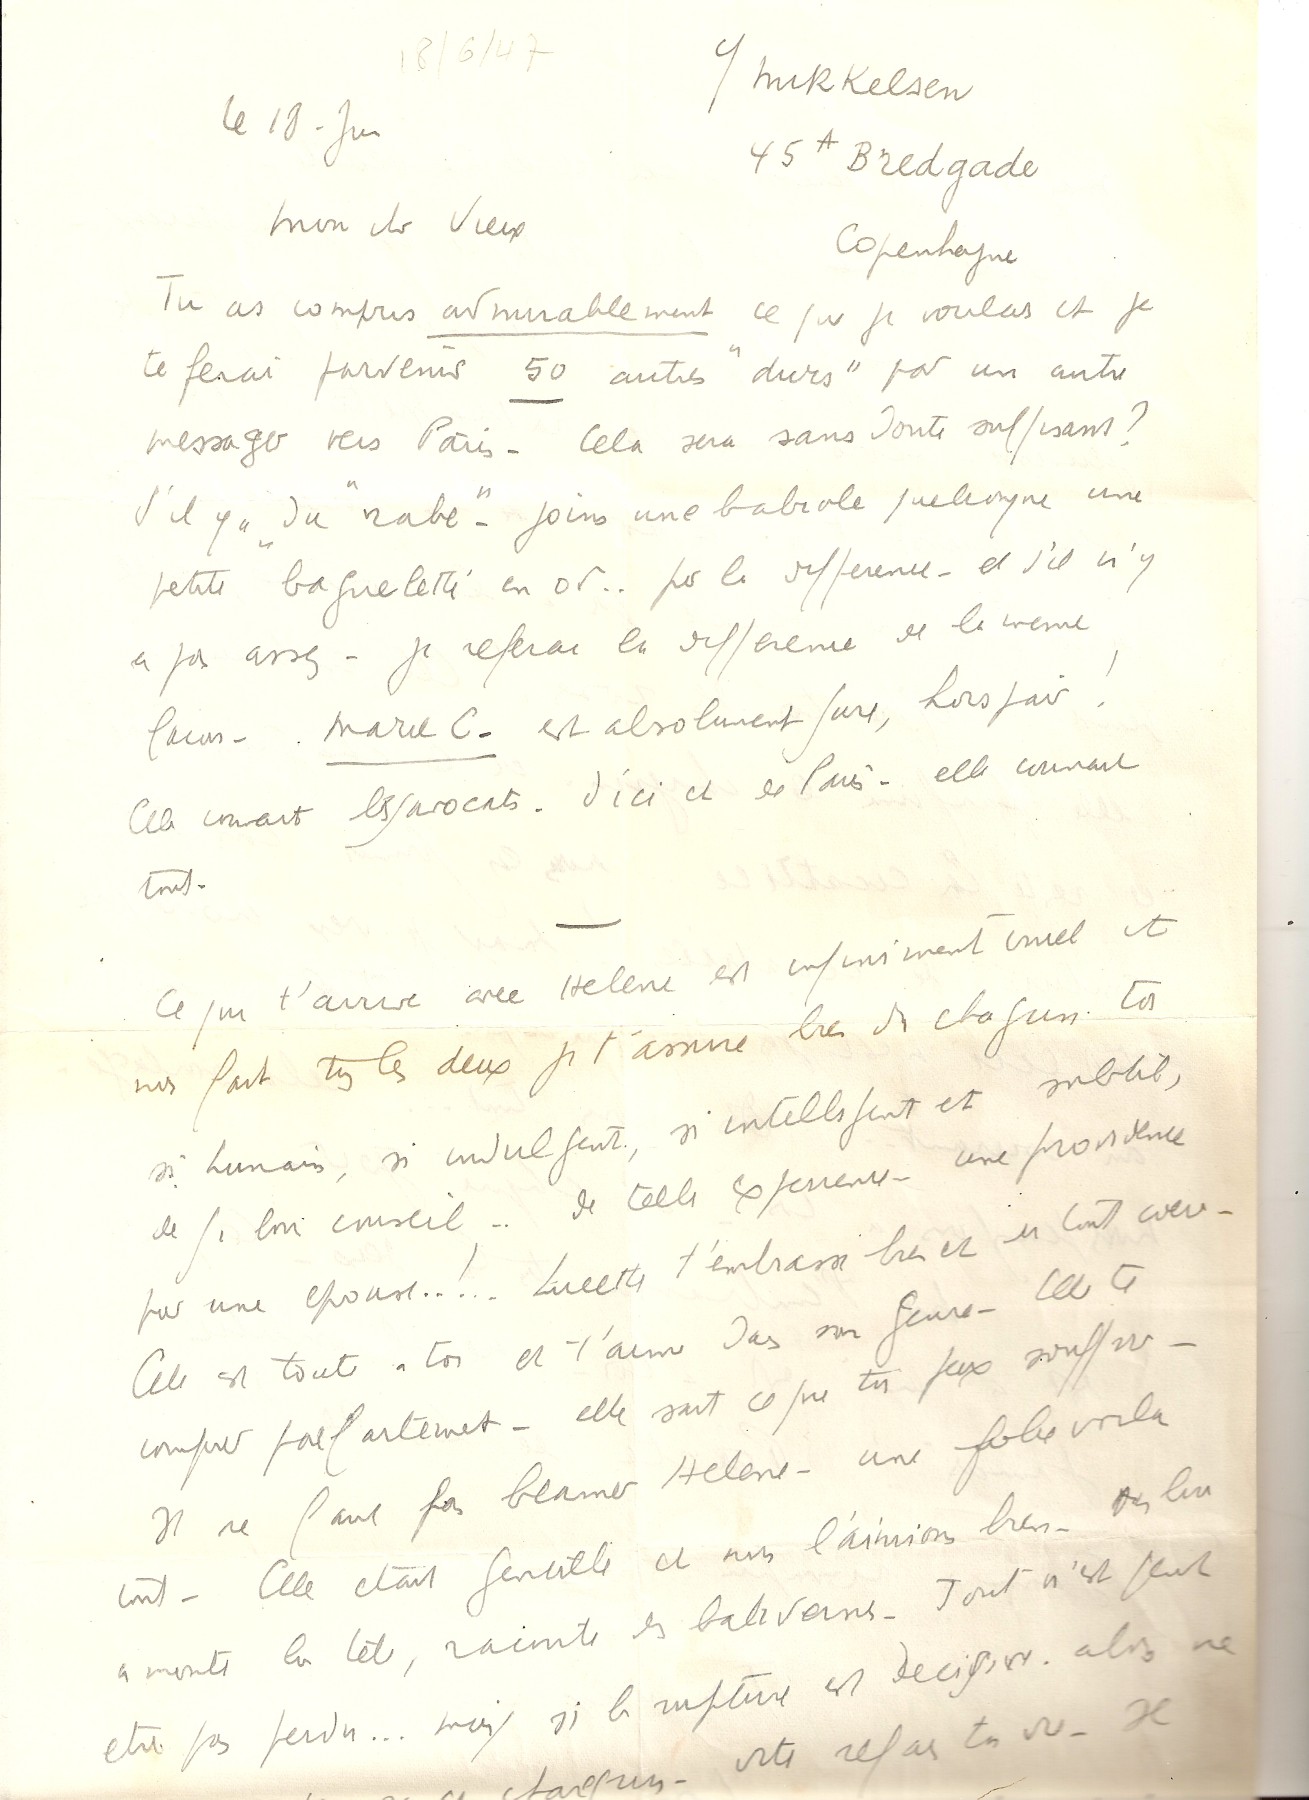 18/6/47
c/ Mikkelsen
le 18 - Jun
45 A Bredgade
Copenhague
mon ch Vieux
Tu as compris admirablement ce que je voulais et je
te ferai parvenir 50 autres "durs" par un autre
messager vers Paris - Cela sera sans doute suffisant?
S'il y a du "rabe" - joins une babiole quelconque une
petite "baguelette en or .. pr la difference - et s'il n'y
a pas assez - je referai la difference de la meme
facon - . Marie C - est absolument sure, hors pair !
Elle connait les avocats - d'ici et de Paris - elle connait
tout -
Ce qui t'arrive avec Helene est infiniment cruel et
nous fait ts les deux je t'assure bien du chagrin. toi
si humain, si indulgent, si intelligent et subtil,
de si bon conseil .. de telle experience - une providence
pour une epouse..!.. Lucette t'embrasse bien et en tout coeur -
Elle est toute a toi et t'aime dans son genre - Elle te
comprend parfaitement - elle sait ce que tu peux souffrir -
Il ne faut pas blamer Helene - une folie voila
tout - Elle etait gentille et nous l'aimions bien - on lui
a monté la tete, raconté des balivernes - Tout n'est peut
etre pas perdu ... mais si la rupture est decisive. alors ne
chagrin - vite refais ta vie - Il